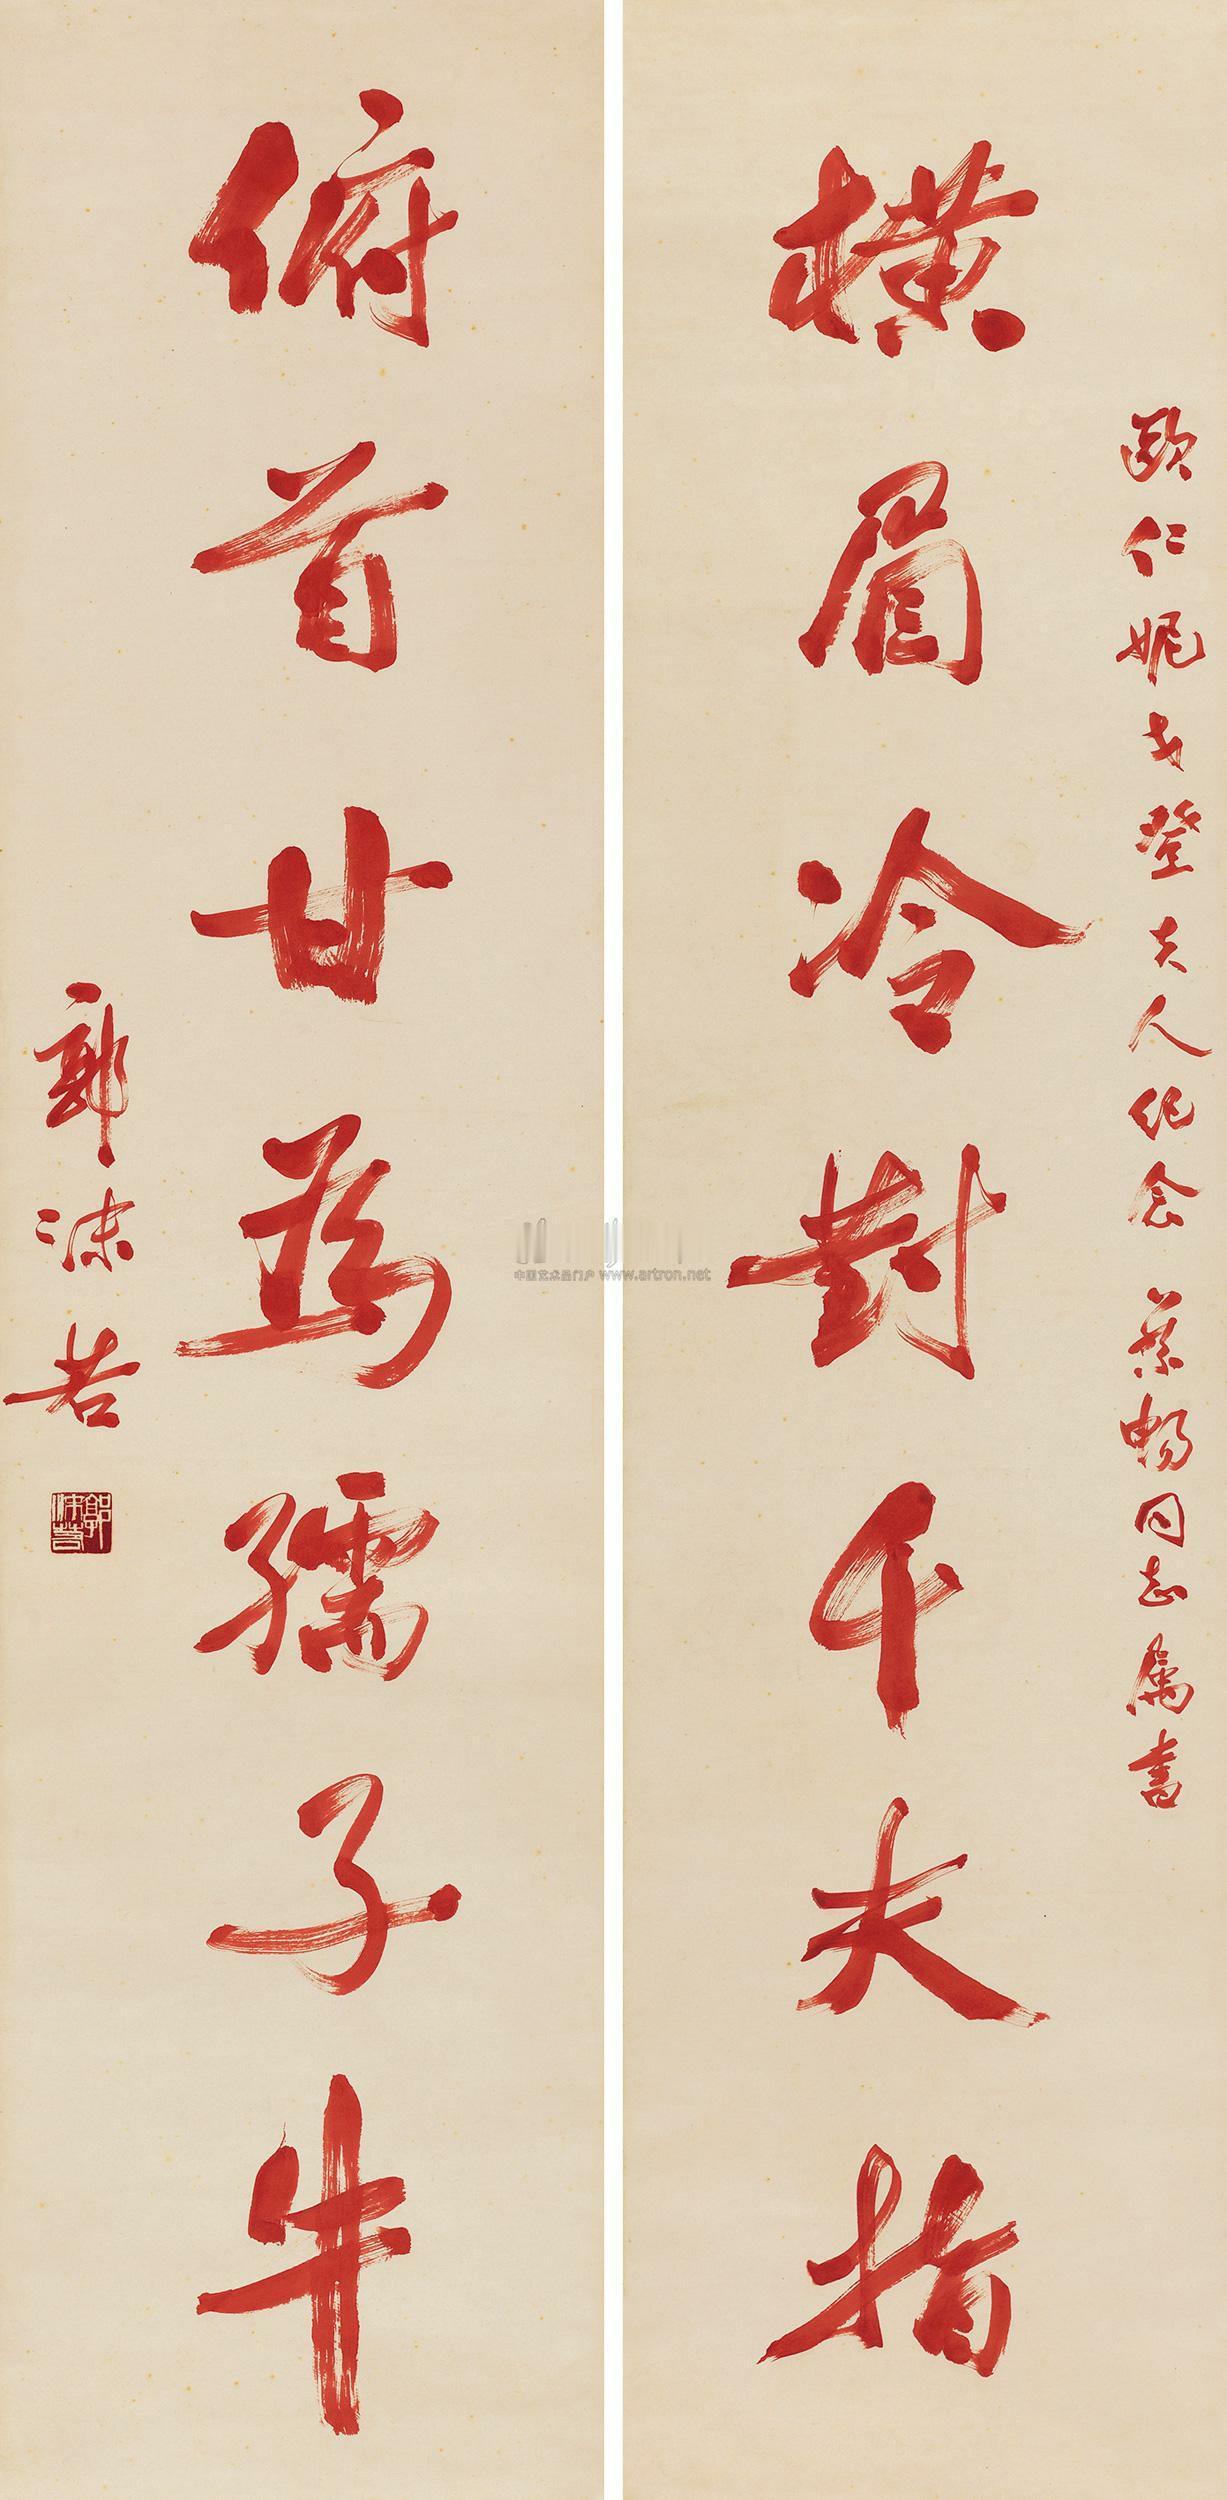 欧仁妮戈登夫人纪念 蔡畅同志属书
橫眉冷對千夫指
俯首甘為孺子牛
郭沫若
郭沫若
中国艺术品门户 www.artron.net